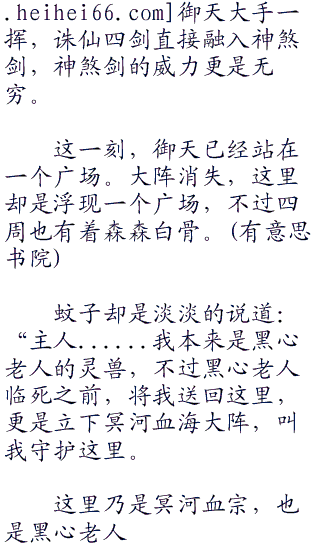 .heihei66.com]御天大手一
挥，诛仙四剑直接融入神煞
剑，神煞剑的威力更是无
穷。
这一刻，御天已经站在
一个广场。大阵消失，这里
却是浮现一个广场，不过四
周也有着森森白骨。(有意思
书院)
蚊子却是淡淡的说道：
“主人......我本来是黑心
老人的灵兽，不过黑心老人
临死之前，将我送回这里，
更是立下冥河血海大阵，叫
我守护这里。
这里乃是冥河血宗，也
是黑心老人